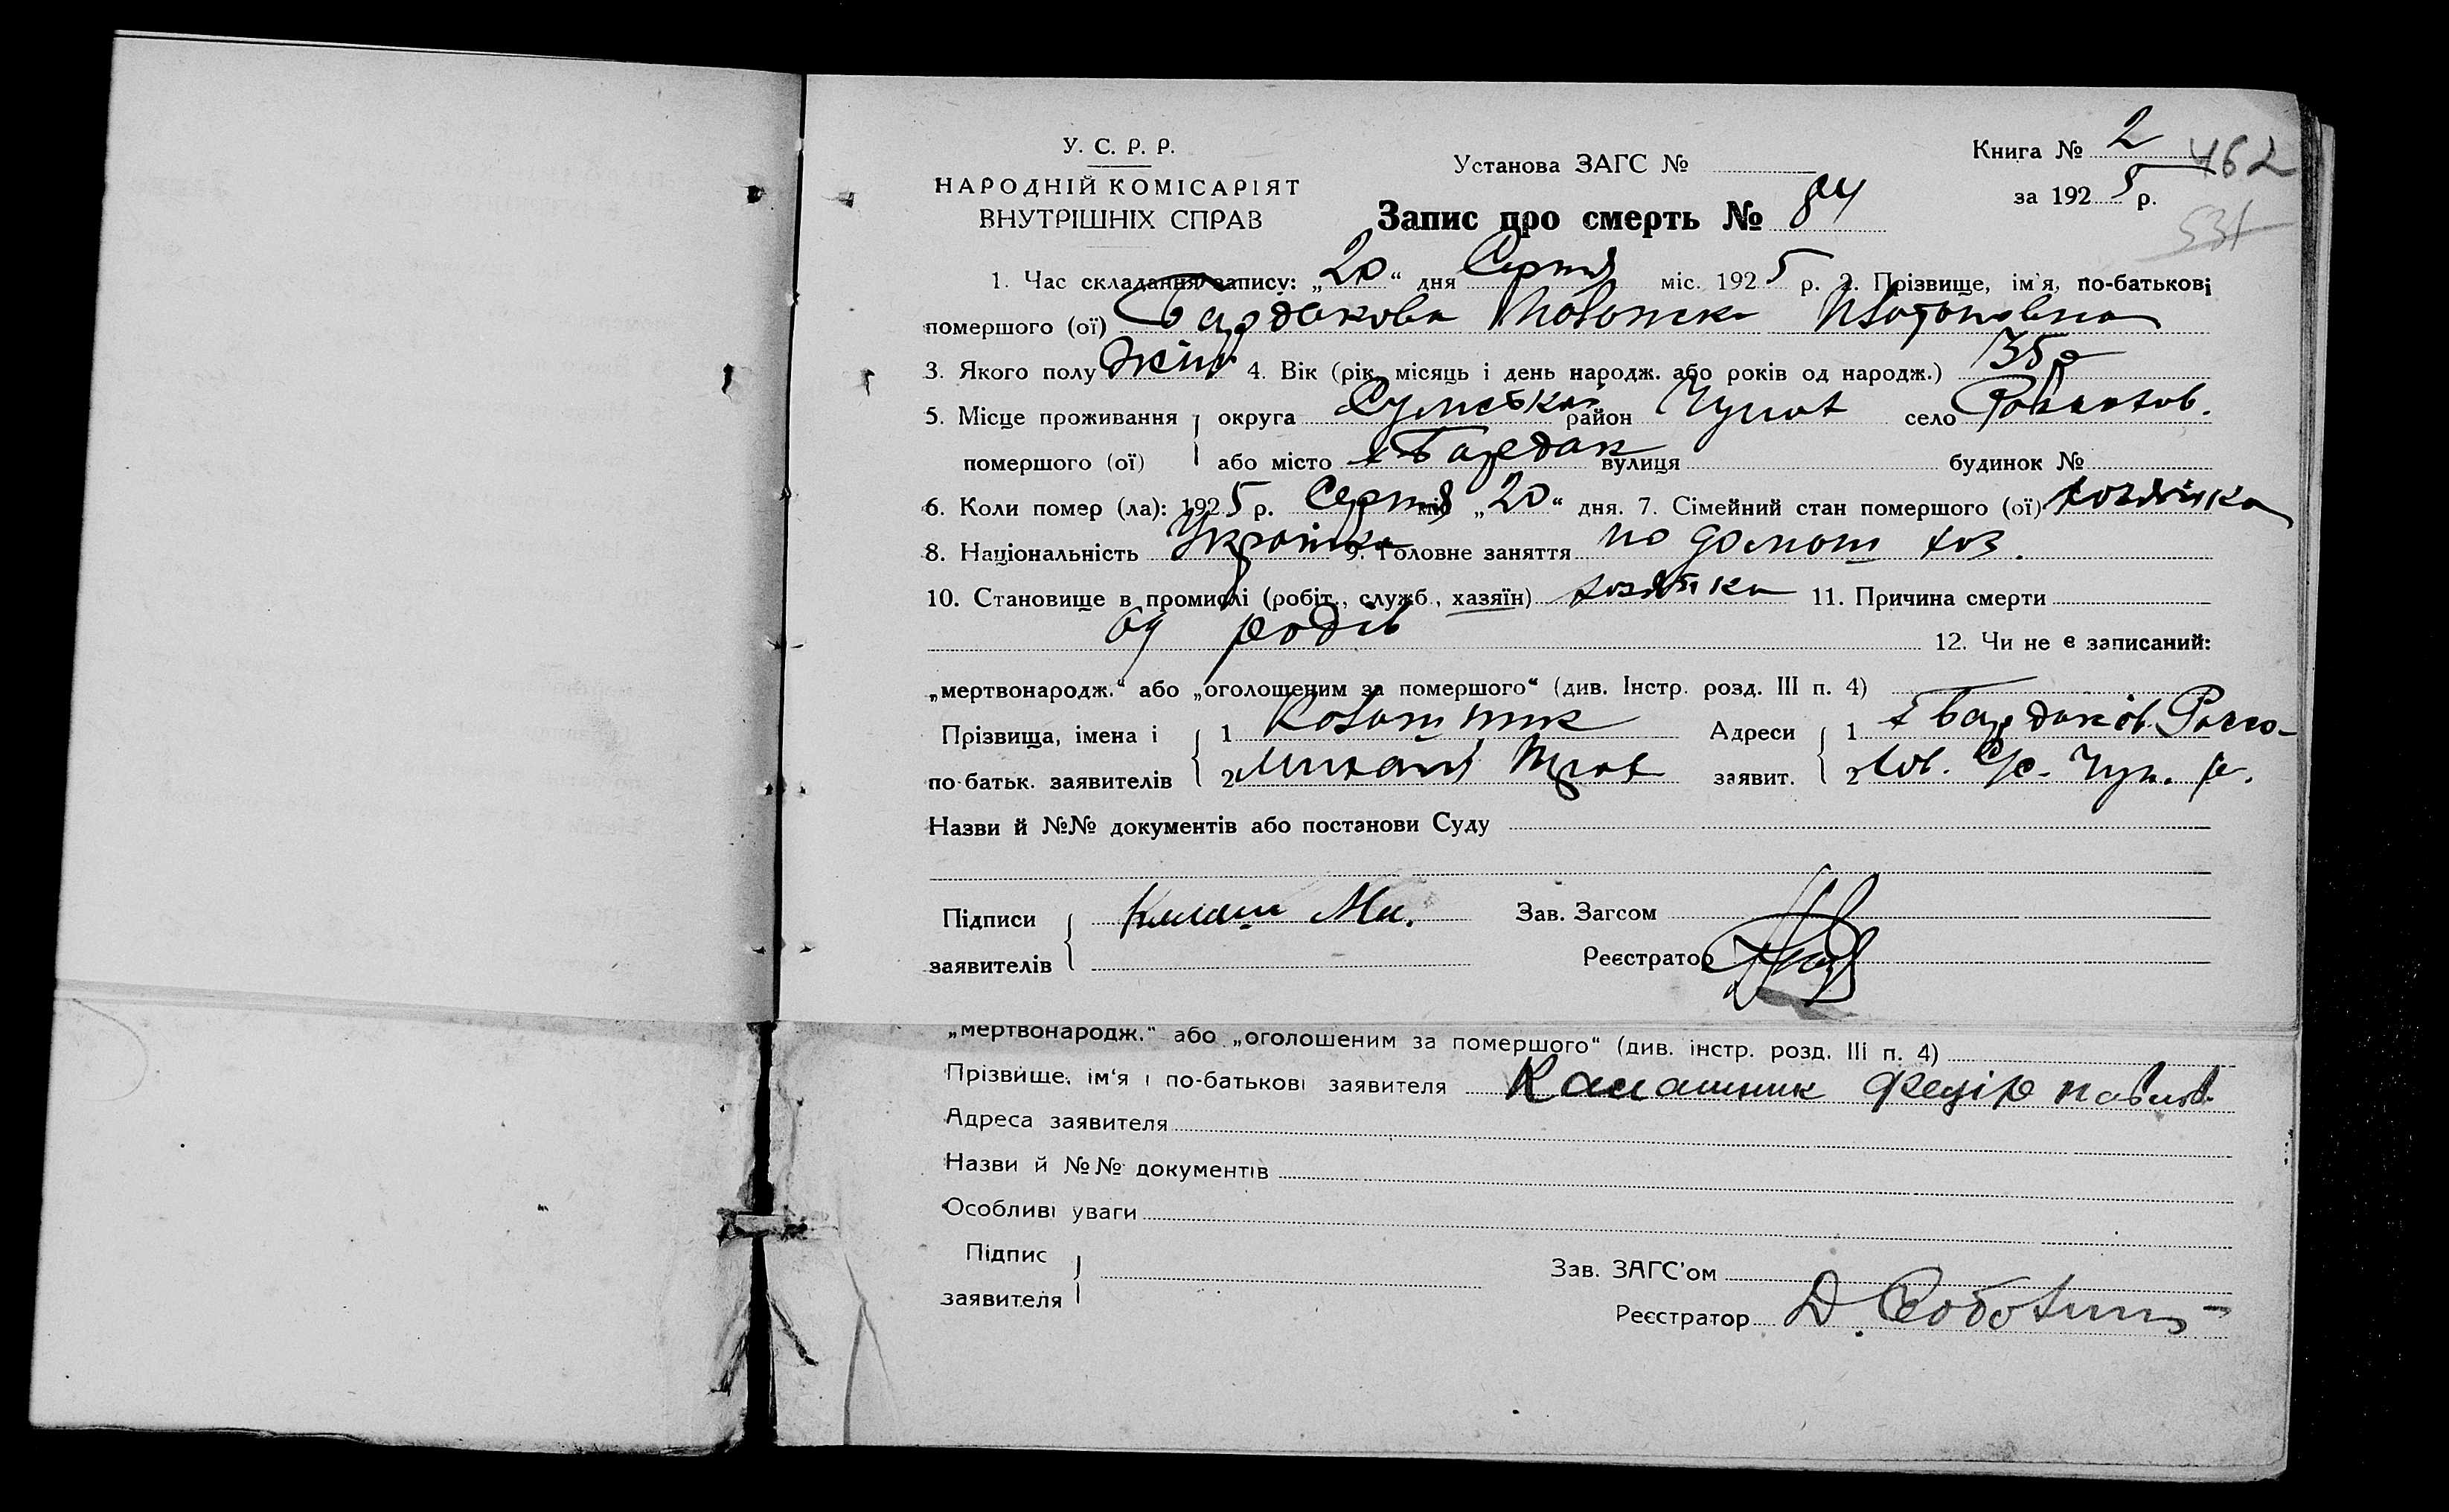 У. С. Р. Р.
НАРОДНІЙ КОМІСАРІЯТ
ВНУТРІШНІХ СПРАВ
Установа ЗАГС №
Книга № 2 462
за 1925 р.
531
Запис про смерть № 84
1. Час складання запису: „20“ дня Серпня міс. 1925 р. 2. Прізвище, ім'я, по-батькові
помершого (ої) Бардакова
3. Якого полу жін 4. Вік (рік, місяць і день народж. або років од народж.) 35 р
5. Місце проживання округа Сумська район Чупах село
помершого (ої) або місто х Бардак вулиця будинок №
6. Коли помер (ла): 1925 р. Серпня міс „20“ дня. 7. Сімейний стан помершого (ої) хозяйка
8. Національність Українка 9. Головне заняття по домаш хоз.
10. Становище в промислі (робіт., служб., хазяїн) хозяйка 11. Причина смерти
од родів 12. Чи не є записаний:
„мертвонародж.“ або „оголошеним за помершого“ (див. Інстр. розд. III п. 4)
Прізвища, імена і 1 Адреси 1 х Бардаків
по-батьк. заявителів 2 заявит. 2 Чуп. р.
Назви й №№ документів або постанови Суду
Підписи Зав. Загсом
заявителів Реєстратор
„мертвонародж.“ або „оголошеним за помершого“ (див. інстр. розд. III п. 4)
Прізвище, ім'я і по-батькові заявителя Калашник Федір Павлов.
Адреса заявителя
Назви й №№ документів
Особливі уваги
Підпис Зав. ЗАГС'ом
заявителя Реєстратор Д.